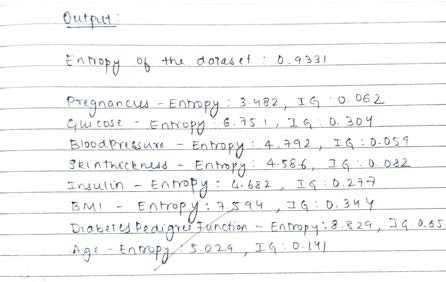 Output:
Entropy of the dataset : 0.9331
Pregnancies - Entropy : 3.482, IG : 0.062
Glucose - Entropy : 6.751, IG : 0.304
BloodPressure - Entropy : 4.792, IG : 0.059
Skinthickness - Entropy : 4.586, IG : 0.082
Insulin - Entropy : 4.682, IG : 0.277
BMI - Entropy : 7.594, IG : 0.344
DiabetesPedigreeFunction - Entropy : 8.829, IG : 0.65
Age - Entropy : 5.029, IG : 0.141